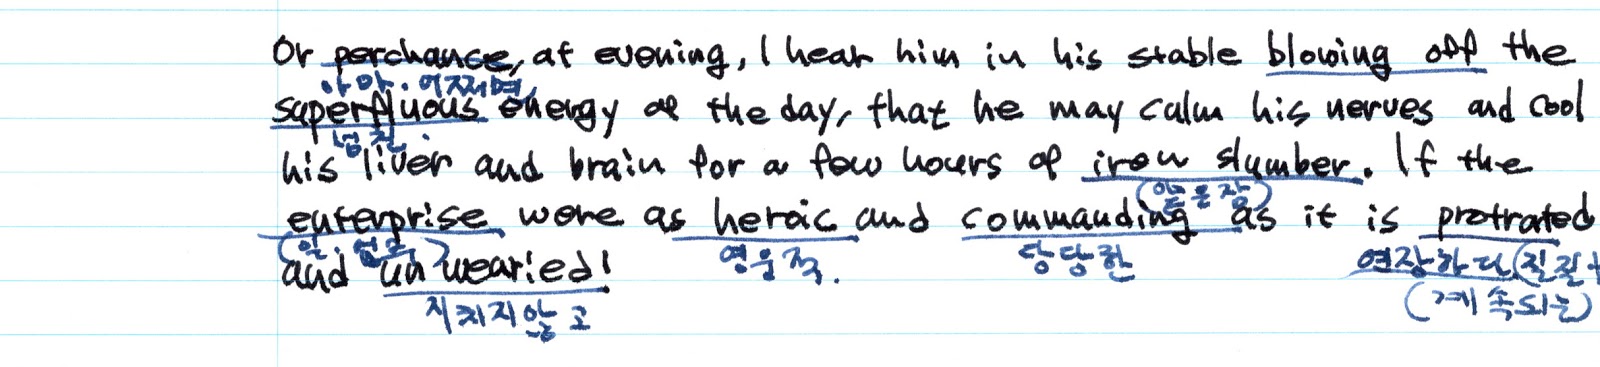 Or perchance, at evening, I hear him in his stable blowing off the
아마. 어쩌면,
superfluous energy of the day, that he may calm his nerves and cool
넘친
his liver and brain for a few hours of iron slumber. If the
(얇은잠)
enterprise were as heroic and commanding as it is protrated
영웅적. 당당한 연장하다
and unwearied!
지치지않고 (계속되는)